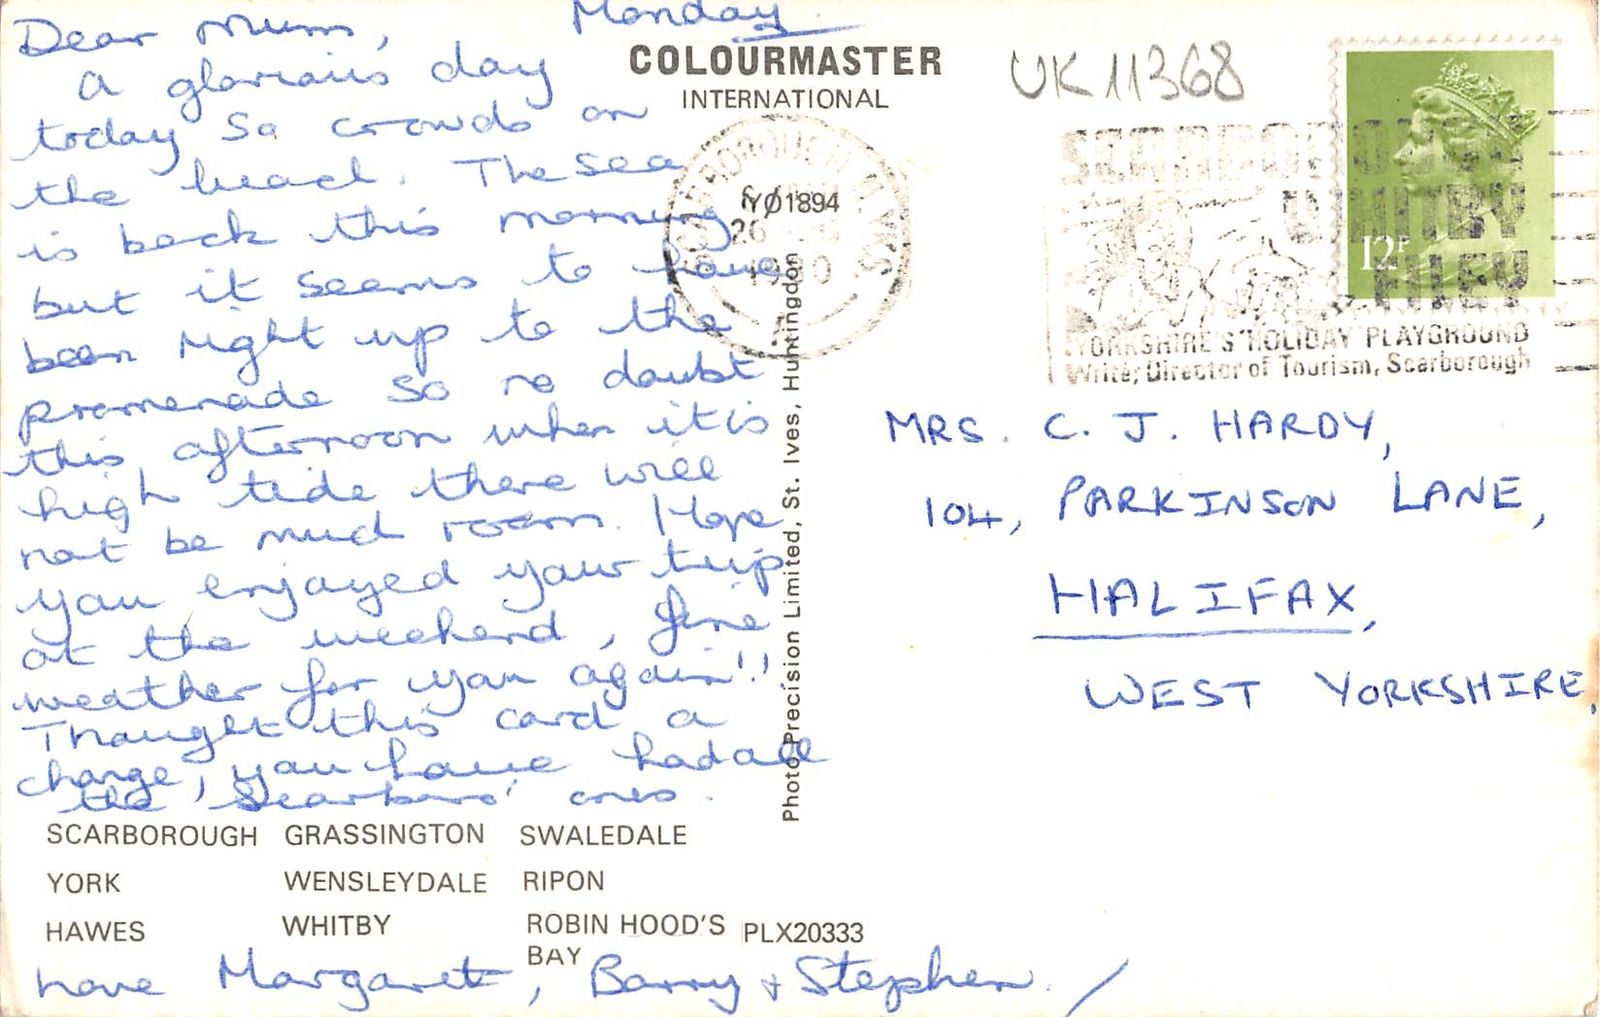 Monday.
Dear Mum,
A glorious day
today so crowds on
the beach. The sea
is back this morning
but it seems to have
been right up to the
promenade so no doubt
this afternoon when it is
high tide there will
not be much room. Hope
you enjoyed your trip
at the weekend, fine
weather for you again!!
Thought this card a
change, you have had all
the 'Scarboro' ones.
SCARBOROUGH GRASSINGTON SWALEDALE
YORK WENSLEYDALE RIPON
HAWES WHITBY ROBIN HOOD'S BAY PLX20333
Love Margaret, Barry + Stephen.
COLOURMASTER
INTERNATIONAL
Photo Precision Limited, St. Ives, Huntingdon
UK 11368
YØ1894
26
1980
12P
SCARBOROUGH
WHITBY
FILEY
YORKSHIRE'S 'HOLIDAY' PLAYGROUND
Write; Director of Tourism, Scarborough
MRS. C. J. HARDY,
104, PARKINSON LANE,
HALIFAX,
WEST YORKSHIRE.